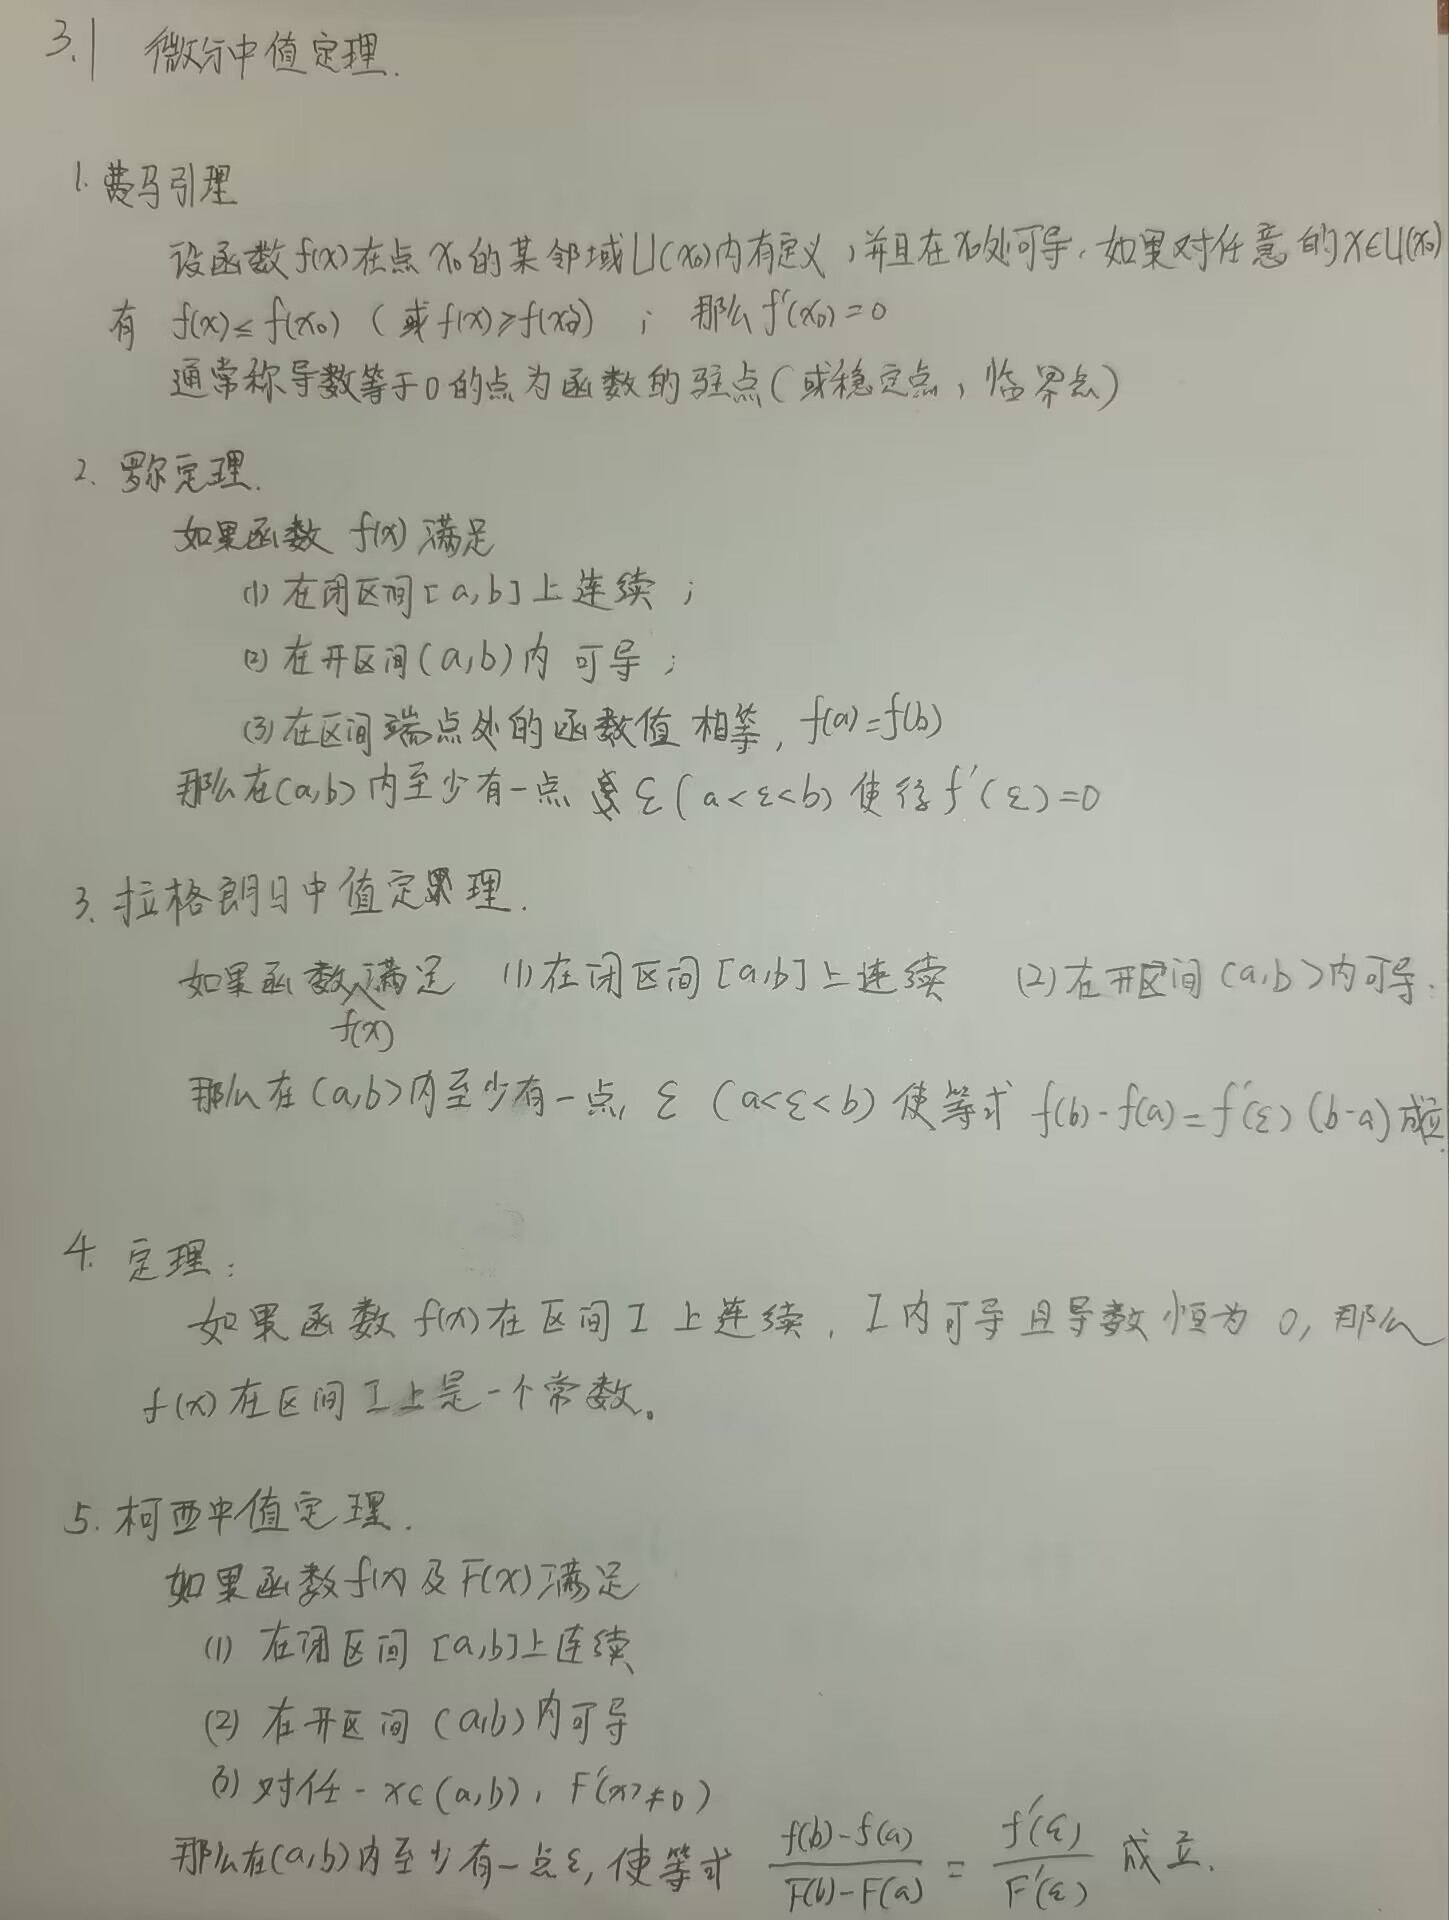 3.1 微分中值定理.
1. 费马引理
设函数 f(x) 在点 x₀ 的某邻域 U(x₀) 内有定义，并且在 x₀ 处可导，如果对任意的 x∈U(x₀)
有 f(x)≤f(x₀)（或 f(x)≥f(x₀)）；那么 f'(x₀)=0
通常称导数等于0的点为函数的驻点（或稳定点，临界点）
2. 罗尔定理.
如果函数 f(x) 满足
(1) 在闭区间[a,b]上连续；
(2) 在开区间(a,b)内可导；
(3) 在区间端点处的函数值相等，f(a)=f(b)
那么在(a,b)内至少有一点 ε(a<ε<b) 使得 f'(ε)=0
3. 拉格朗日中值定理.
如果函数 f(x) 满足 (1)在闭区间[a,b]上连续 (2)在开区间(a,b)内可导.
那么在(a,b)内至少有一点, ε (a<ε<b) 使等式 f(b)-f(a)=f'(ε)(b-a)成立.
4. 定理：
如果函数 f(x) 在区间 I 上连续，I 内可导且导数恒为0，那么
f(x)在区间 I 上是一个常数。
5. 柯西中值定理.
如果函数 f(x) 及 F(x) 满足
(1) 在闭区间[a,b]上连续
(2) 在开区间(a,b)内可导
(3) 对任一 x∈(a,b)，F'(x)≠0)
那么在(a,b)内至少有一点ε, 使等式 (f(b)-f(a))/(F(b)-F(a)) = f'(ε)/F'(ε) 成立.